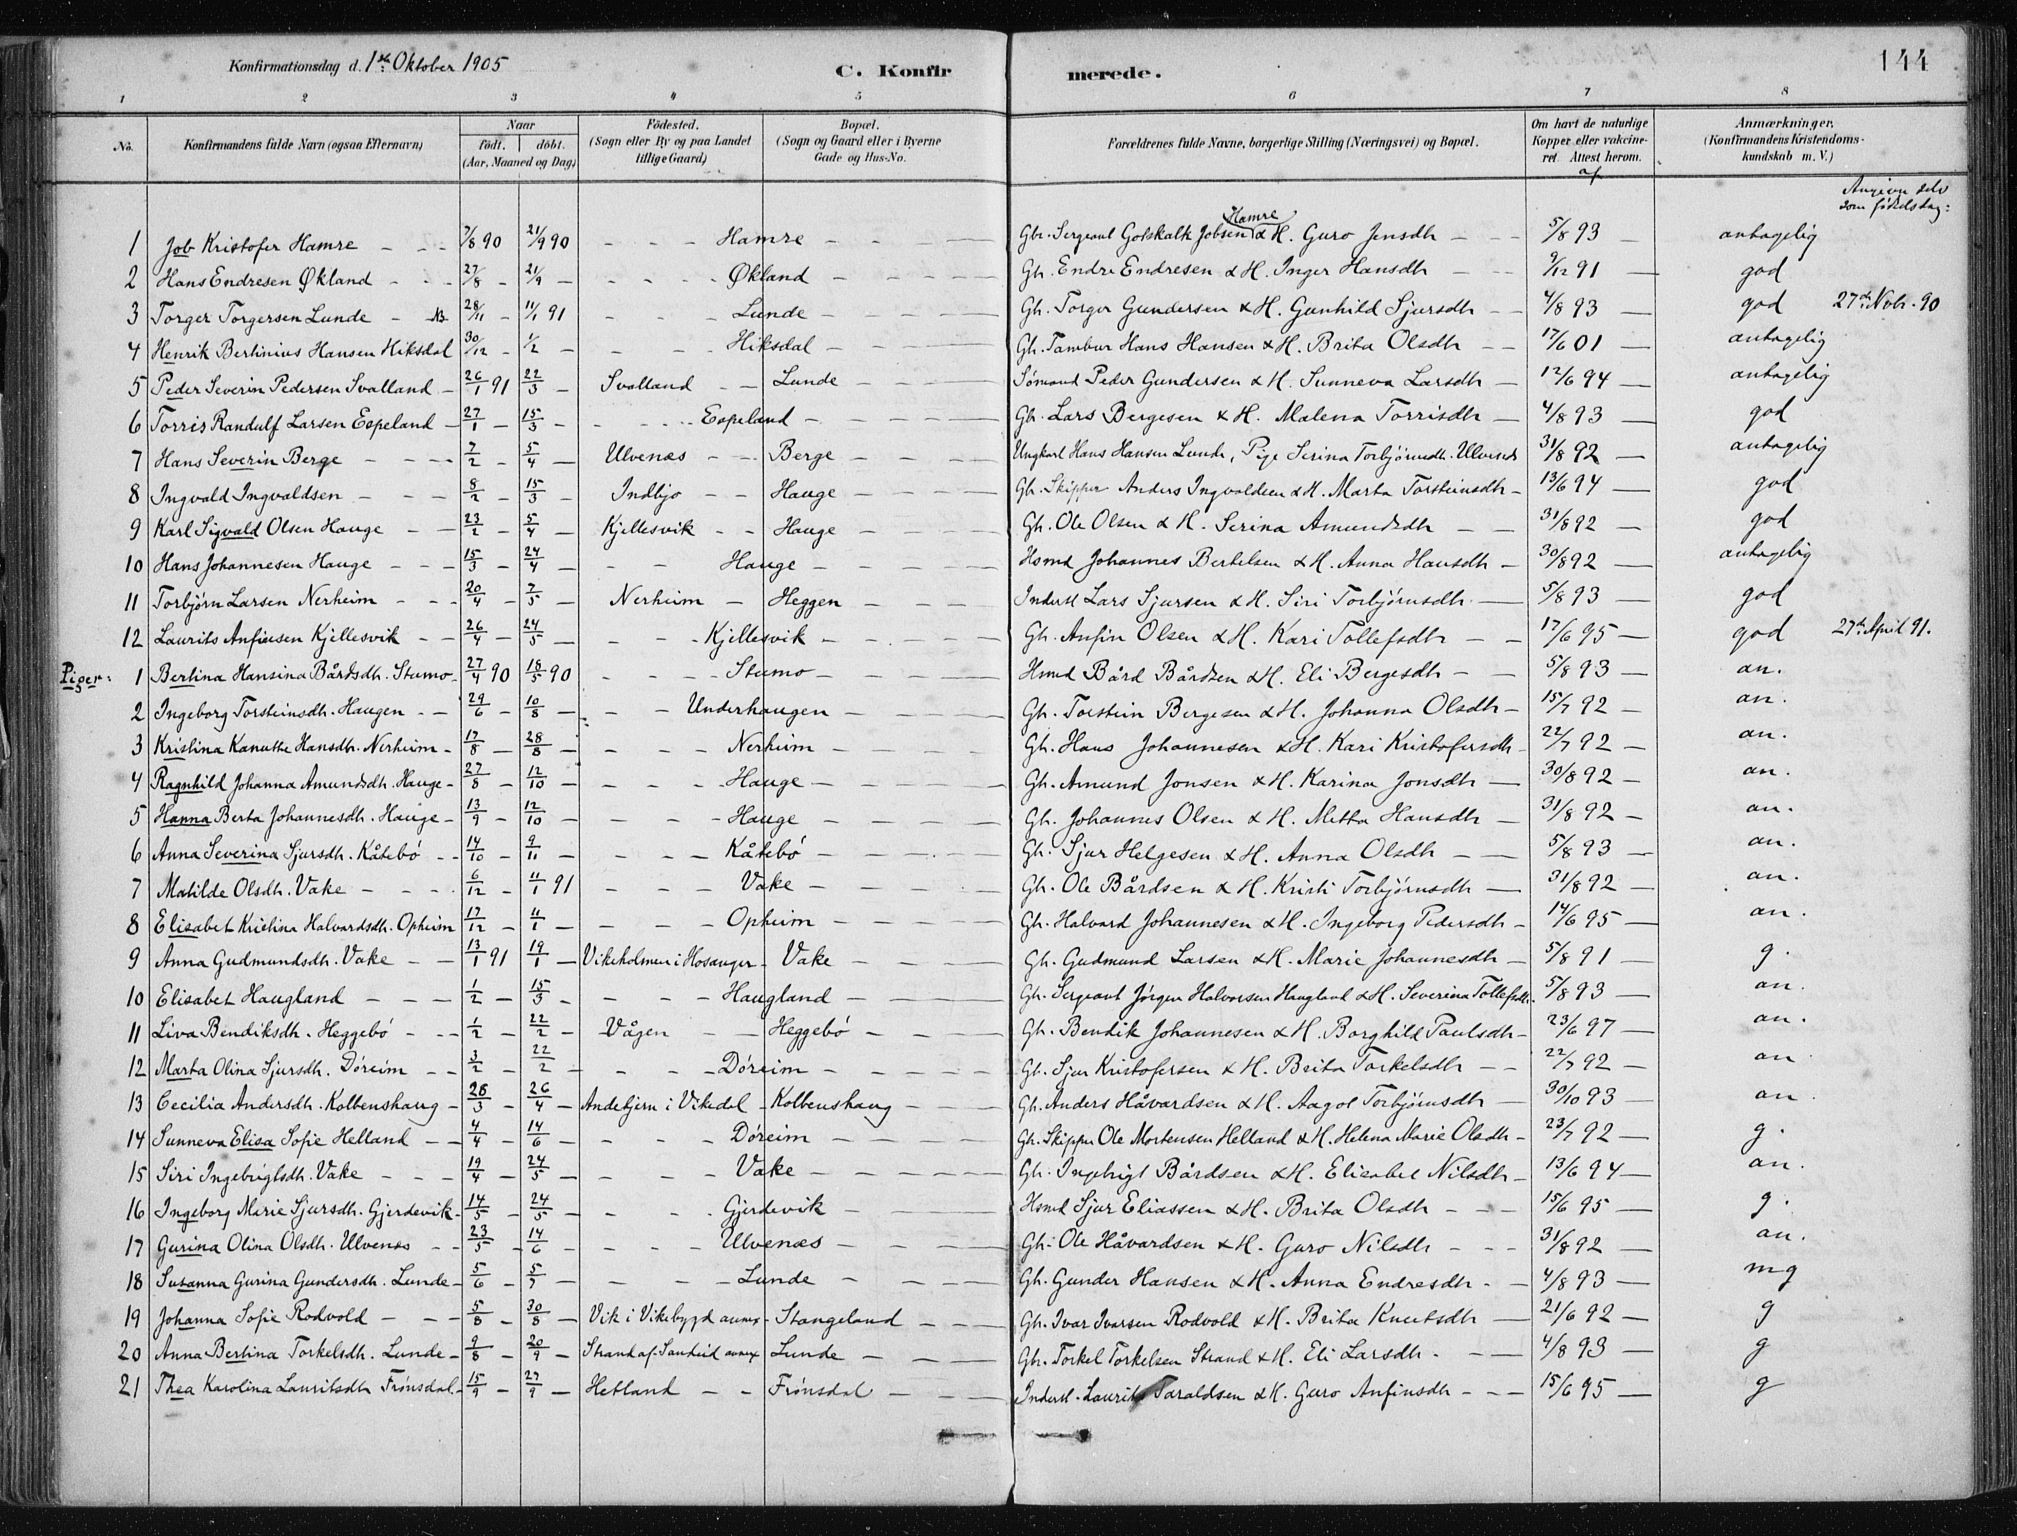 Konfirmationsdag d. 1ste Oktober 1905
C. Konfirmerede.
144
1 2 3 4 5 6 7 8
No. Konfirmandens fulde Navn (ogsaa Efternavn) Naar født. døbt. (Aar, Maaned og Dag) Fødested. (Sogn eller By og paa Landet tillige Gaard) Bopæl. (Sogn og Gaard eller i Byerne Gade og Hus-No. Forældrenes fulde Navne, borgerlige Stilling (Næringsvei) og Bopæl. Om havt de naturlige Kopper eller vakcineret Attest herom. af Anmærkninger. (Konfirmandens Kristendomskundskab m. V.)
Angiven selv som fødselsdag:
1 Job Kristofer Hamre 7/8 90 21/9 90 Hamre Gbr. Sergeant Gotskalk Jobsen Hamre & H. Guro Jensdtr 5/8 93 antagelig
2 Hans Endresen Økland 27/8 - 21/9 - Økland Gb. Endre Endresen & H. Inger Hansdtr 9/12 91 god
3 Torger Torgersen Lunde NB 28/11 - 11/1 91 Lunde Gb. Torger Gundersen & H. Gunhild Sjursdtr 4/8 93 god 27de Nobr. 90
4 Henrik Bertinius Hansen Hiksdal 30/12 - 1/2 - Hiksdal Gb. Tambur Hans Hansen & H. Brita Olsdtr 17/6 01 antagelig
5 Peder Severin Pedersen Svalland 26/1 91 22/3 - Svalland Lunde Sømand Peder Gundersen & H. Sunneva Larsdtr 12/6 94 antagelig
6 Torris Randulf Larsen Espeland 27/1 - 15/3 - Espeland Gb. Lars Bergesen & H. Malena Torrisdtr 4/8 93 god
7 Hans Severin Berge 7/2 - 5/4 - Ulvenæs Berge Ungkarl Hans Hansen Lunde, Pige Serina Torbjørnsdtr. Ulvenæs 31/8 92 antagelig
8 Ingvald Ingvaldsen 8/2 - 15/3 - Indbjo Hauge Gb. Skipper Anders Ingvaldsen & H. Marta Torsteinsdtr 13/6 94 god
9 Karl Sigvald Olsen Hauge 23/2 - 5/4 - Kjellesvik Hauge Gb. Ole Olsen & H. Serina Amundsdtr 31/8 92 god
10 Hans Johannesen Hauge 15/3 - 24/4 - Hauge Hsmd Johannes Bertelsen & H. Anna Hansdtr 30/8 92 antagelig
11 Torbjørn Larsen Nerheim 20/4 - 7/5 - Nerheim Heggen Inderst Lars Sjursen & H. Siri Torbjørnsdtr 5/8 93 god
12 Laurits Anfinsen Kjellesvik 26/4 - 24/5 - Kjellesvik Gb. Anfin Olsen & H. Kari Tollefsdtr 17/6 95 god 27de April 91.
Piger:
1 Bertina Hansina Bårdsdtr. Stumo 27/4 90 18/5 90 Stumo Hsmd Bård Bårdsen & H. Eli Bergesdtr 5/8 93 an.
2 Ingeborg Torsteinsdtr. Haugen 29/6 - 10/8 - Underhaugen Gb. Torstein Bergesen & H. Johanna Olsdtr 15/7 92 an.
3 Kristina Kanutte Hansdtr. Nerheim 17/8 - 28/8 - Nerheim Gb. Hans Johannesen & H. Kari Kristofersdtr 22/7 92 an.
4 Ragnhild Johanna Amundsdtr. Hauge 27/8 - 12/10 - Hauge Gb. Amund Jonsen & H. Karina Jonsdtr 30/8 92 an.
5 Hanna Berta Johannesdtr. Hauge 13/9 - 12/10 - Hauge Gb. Johannes Olsen & H. Metta Hansdtr 31/8 92 an.
6 Anna Severina Sjursdtr. Kåtebø 14/10 - 9/11 - Kåtebø Gb. Sjur Helgesen & H. Anna Olsdtr 5/8 93 an.
7 Matilde Olsdtr. Vake 6/12 - 11/1 91 Vake Gb. Ole Bårdsen & H. Kristi Torbjørnsdtr 31/8 92 an.
8 Elisabet Kristina Halvardsdtr. Opheim 17/12 - 11/1 - Opheim Gb. Halvard Johannesen & H. Ingeborg Pedersdtr 14/6 95 an.
9 Anna Gudmundsdtr. Vake 13/1 91 19/1 - Vikeholmen i Hosanger Vake Gb. Gudmund Larsen & H. Marie Johannesdtr 5/8 91 g.
10 Elisabet Haugland 1/2 - 15/3 - Haugland Gb. Sergeant Jørgen Halvorsen Haugland & H. Severina Tollefsdtr. 5/8 93 an.
11 Liva Bendiksdtr. Heggebø 1/2 - 22/2 - Vågen Heggebø Gb. Bendik Johannesen & H. Borghild Paulsdtr 23/6 97 an.
12 Marta Olina Sjursdtr. Døreim 3/2 - 22/2 - Døreim Gb. Sjur Kristofersen & H. Brita Torkelsdtr 22/7 92 an
13 Cecilia Andersdtr. Kolbenshaug 28/3 - 26/4 - Andebjern i Vikedal Kolbenshaug Gb. Anders Håvardsen & H. Aagot Torbjørnsdtr 30/10 93 an
14 Sunneva Elisa Sofie Helland 4/4 - 14/6 - Døreim Gb. Skipper Ole Mortensen Helland & H. Helena Marie Olsdtr 23/7 92 g.
15 Siri Ingebrigtsdtr. Vake 19/4 - 24/5 - Vake Gb. Ingebrigt Bårdsen & H. Elisabet Nilsdtr 13/6 94 an.
16 Ingeborg Marie Sjursdtr. Gjerdevik 14/5 - 24/5 - Gjerdevik Hsmd Sjur Eliassen & H. Brita Olsdtr 15/6 95 g.
17 Gurina Olina Olsdtr. Ulvenæs 23/5 - 14/6 - Ulvenæs Gb. Ole Håvardsen & H. Guro Nilsdtr 31/8 92 an.
18 Susanna Gurina Gundersdtr. Lunde 5/6 - 5/7 - Lunde Gb. Gunder Hansen & H. Anna Endresdtr. 4/8 93 mg
19 Johanna Sofie Rodvold 5/8 - 30/8 - Vik i Vikebygd annex Stangeland Gb. Ivar Ivarsen Rodvold & H. Brita Knutsdtr 21/6 92 g
20 Anna Bertina Torkelsdtr. Lunde 9/8 - 20/9 - Strand af Sandeid annex Lunde Gb. Torkel Torkelsen Strand & H. Eli Larsdtr. 4/8 93 g
21 Thea Karolina Lauritsdtr Frønsdal 15/9 - 27/9 - Hetland Frønsdal Inderst. Laurits Taraldsen & H. Guro Anfinsdtr 15/6 95 g